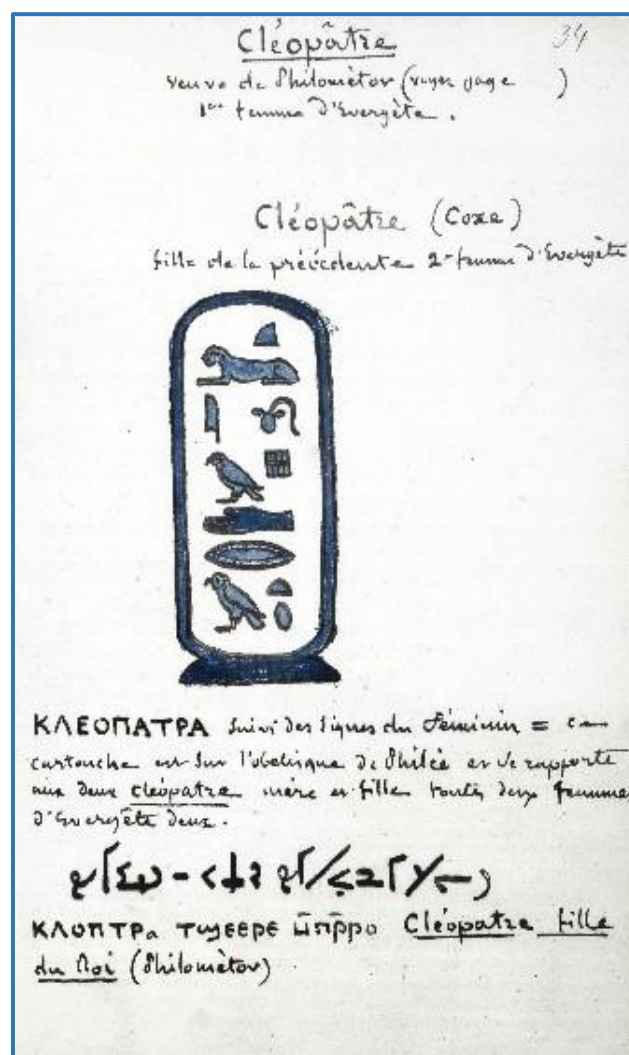 34
Cléopâtre
veuve de Philométor (voyez page )
1ere femme d'Evergète.
Cléopâtre (Coxe)
fille de la précédente 2e femme d'Evergète
ΚΛΕΟΠΑΤΡΑ suivi des signes du Féminin = ce
cartouche est sur l'obélisque de Philée et se rapporte
aux deux cléopatre mère et fille toutes deux femmes
d'Evergète deux.
ΚΛΟΠΤΡα ⲧϣⲉⲉⲣⲉ ⲙ̄ⲡⲣ̄ⲣⲟ Cléopatre fille
du Roi (Philométor)